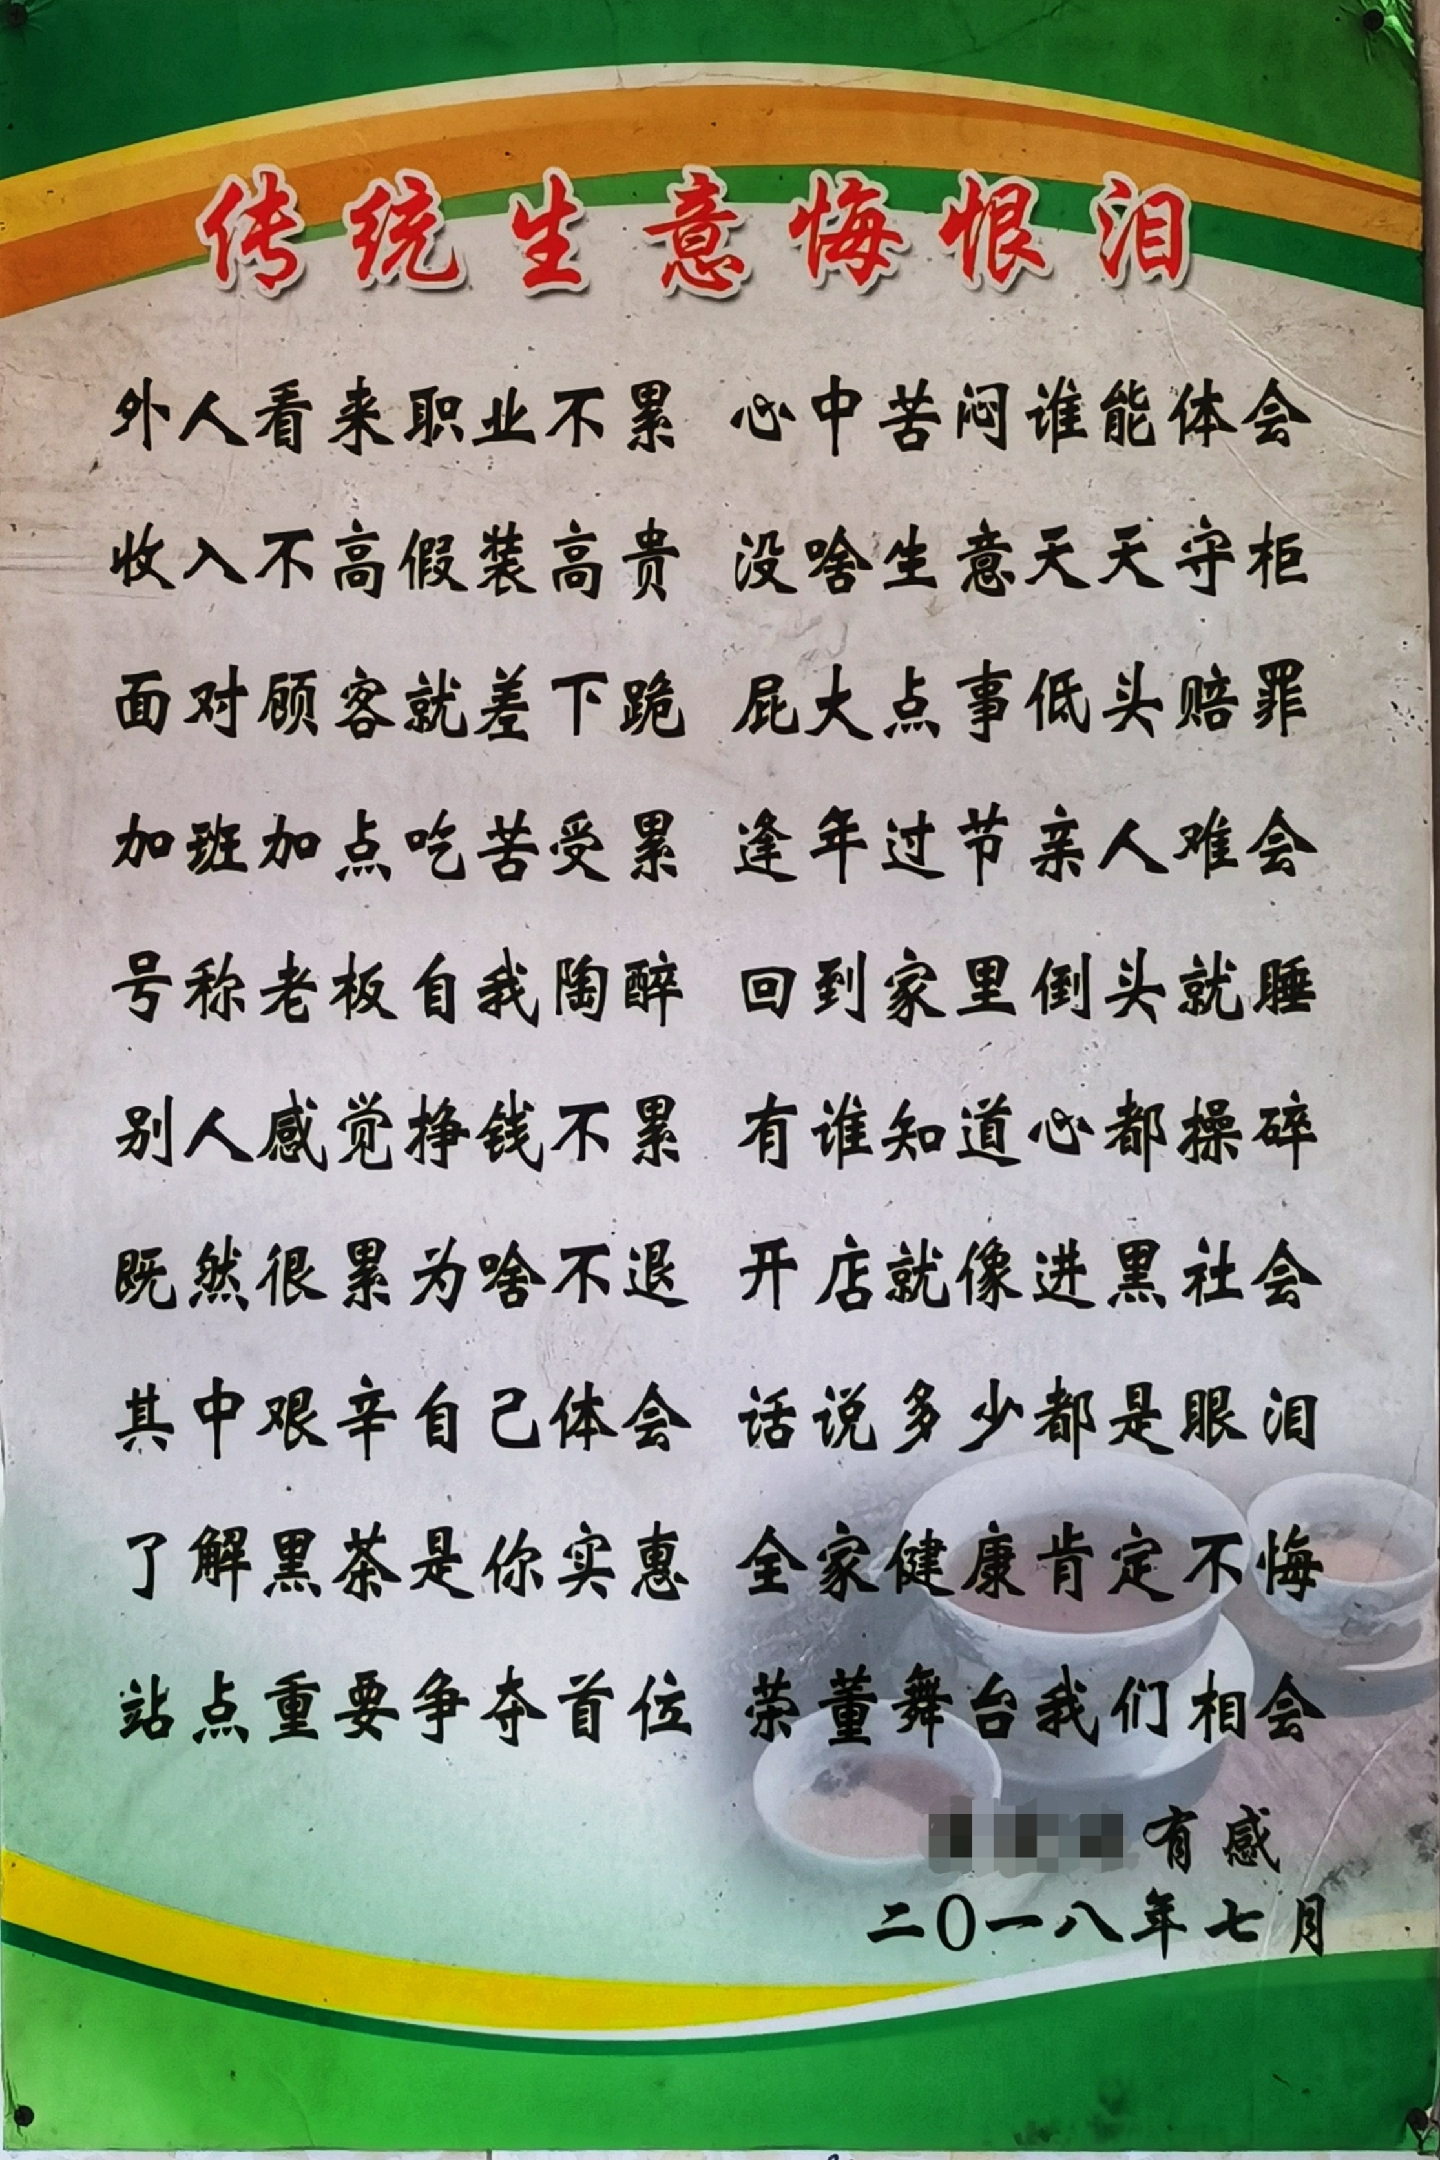 传统生意悔恨泪
外人看来职业不累 心中苦闷谁能体会
收入不高假装高贵 没啥生意天天守柜
面对顾客就差下跪 屁大点事低头赔罪
加班加点吃苦受累 逢年过节亲人难会
号称老板自我陶醉 回到家里倒头就睡
别人感觉挣钱不累 有谁知道心都操碎
既然很累为啥不退 开店就像进黑社会
其中艰辛自己体会 话说多少都是眼泪
了解黑茶是你实惠 全家健康肯定不悔
站点重要争夺首位 荣董舞台我们相会
有感
二〇一八年七月